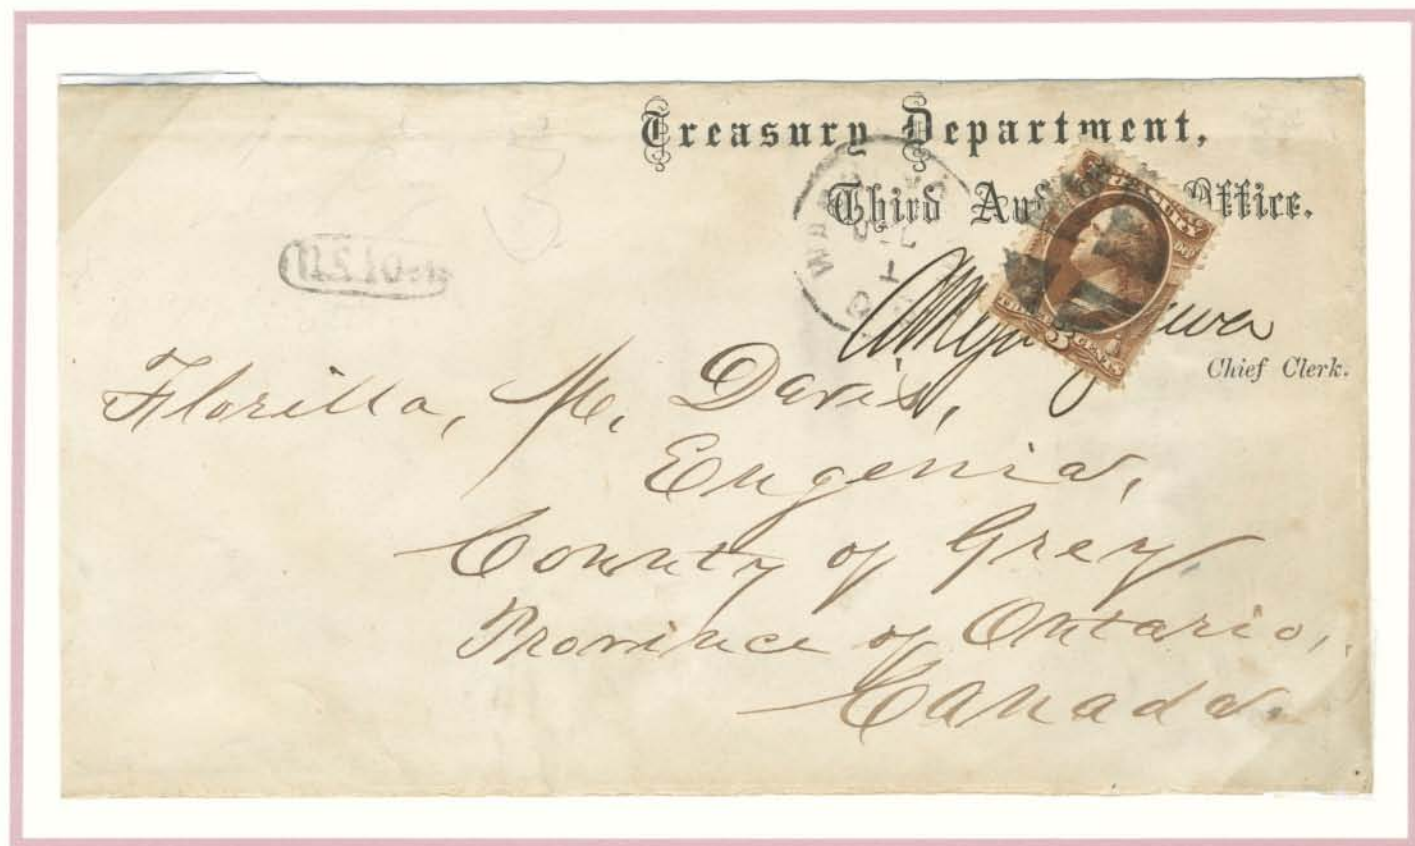 Treasury Department,
Third Au Office.
Chief Clerk.
U.S. 10cts
Florilla, M. Davis,
Eugenia,
County of Grey
Province of Ontario,
Canada.